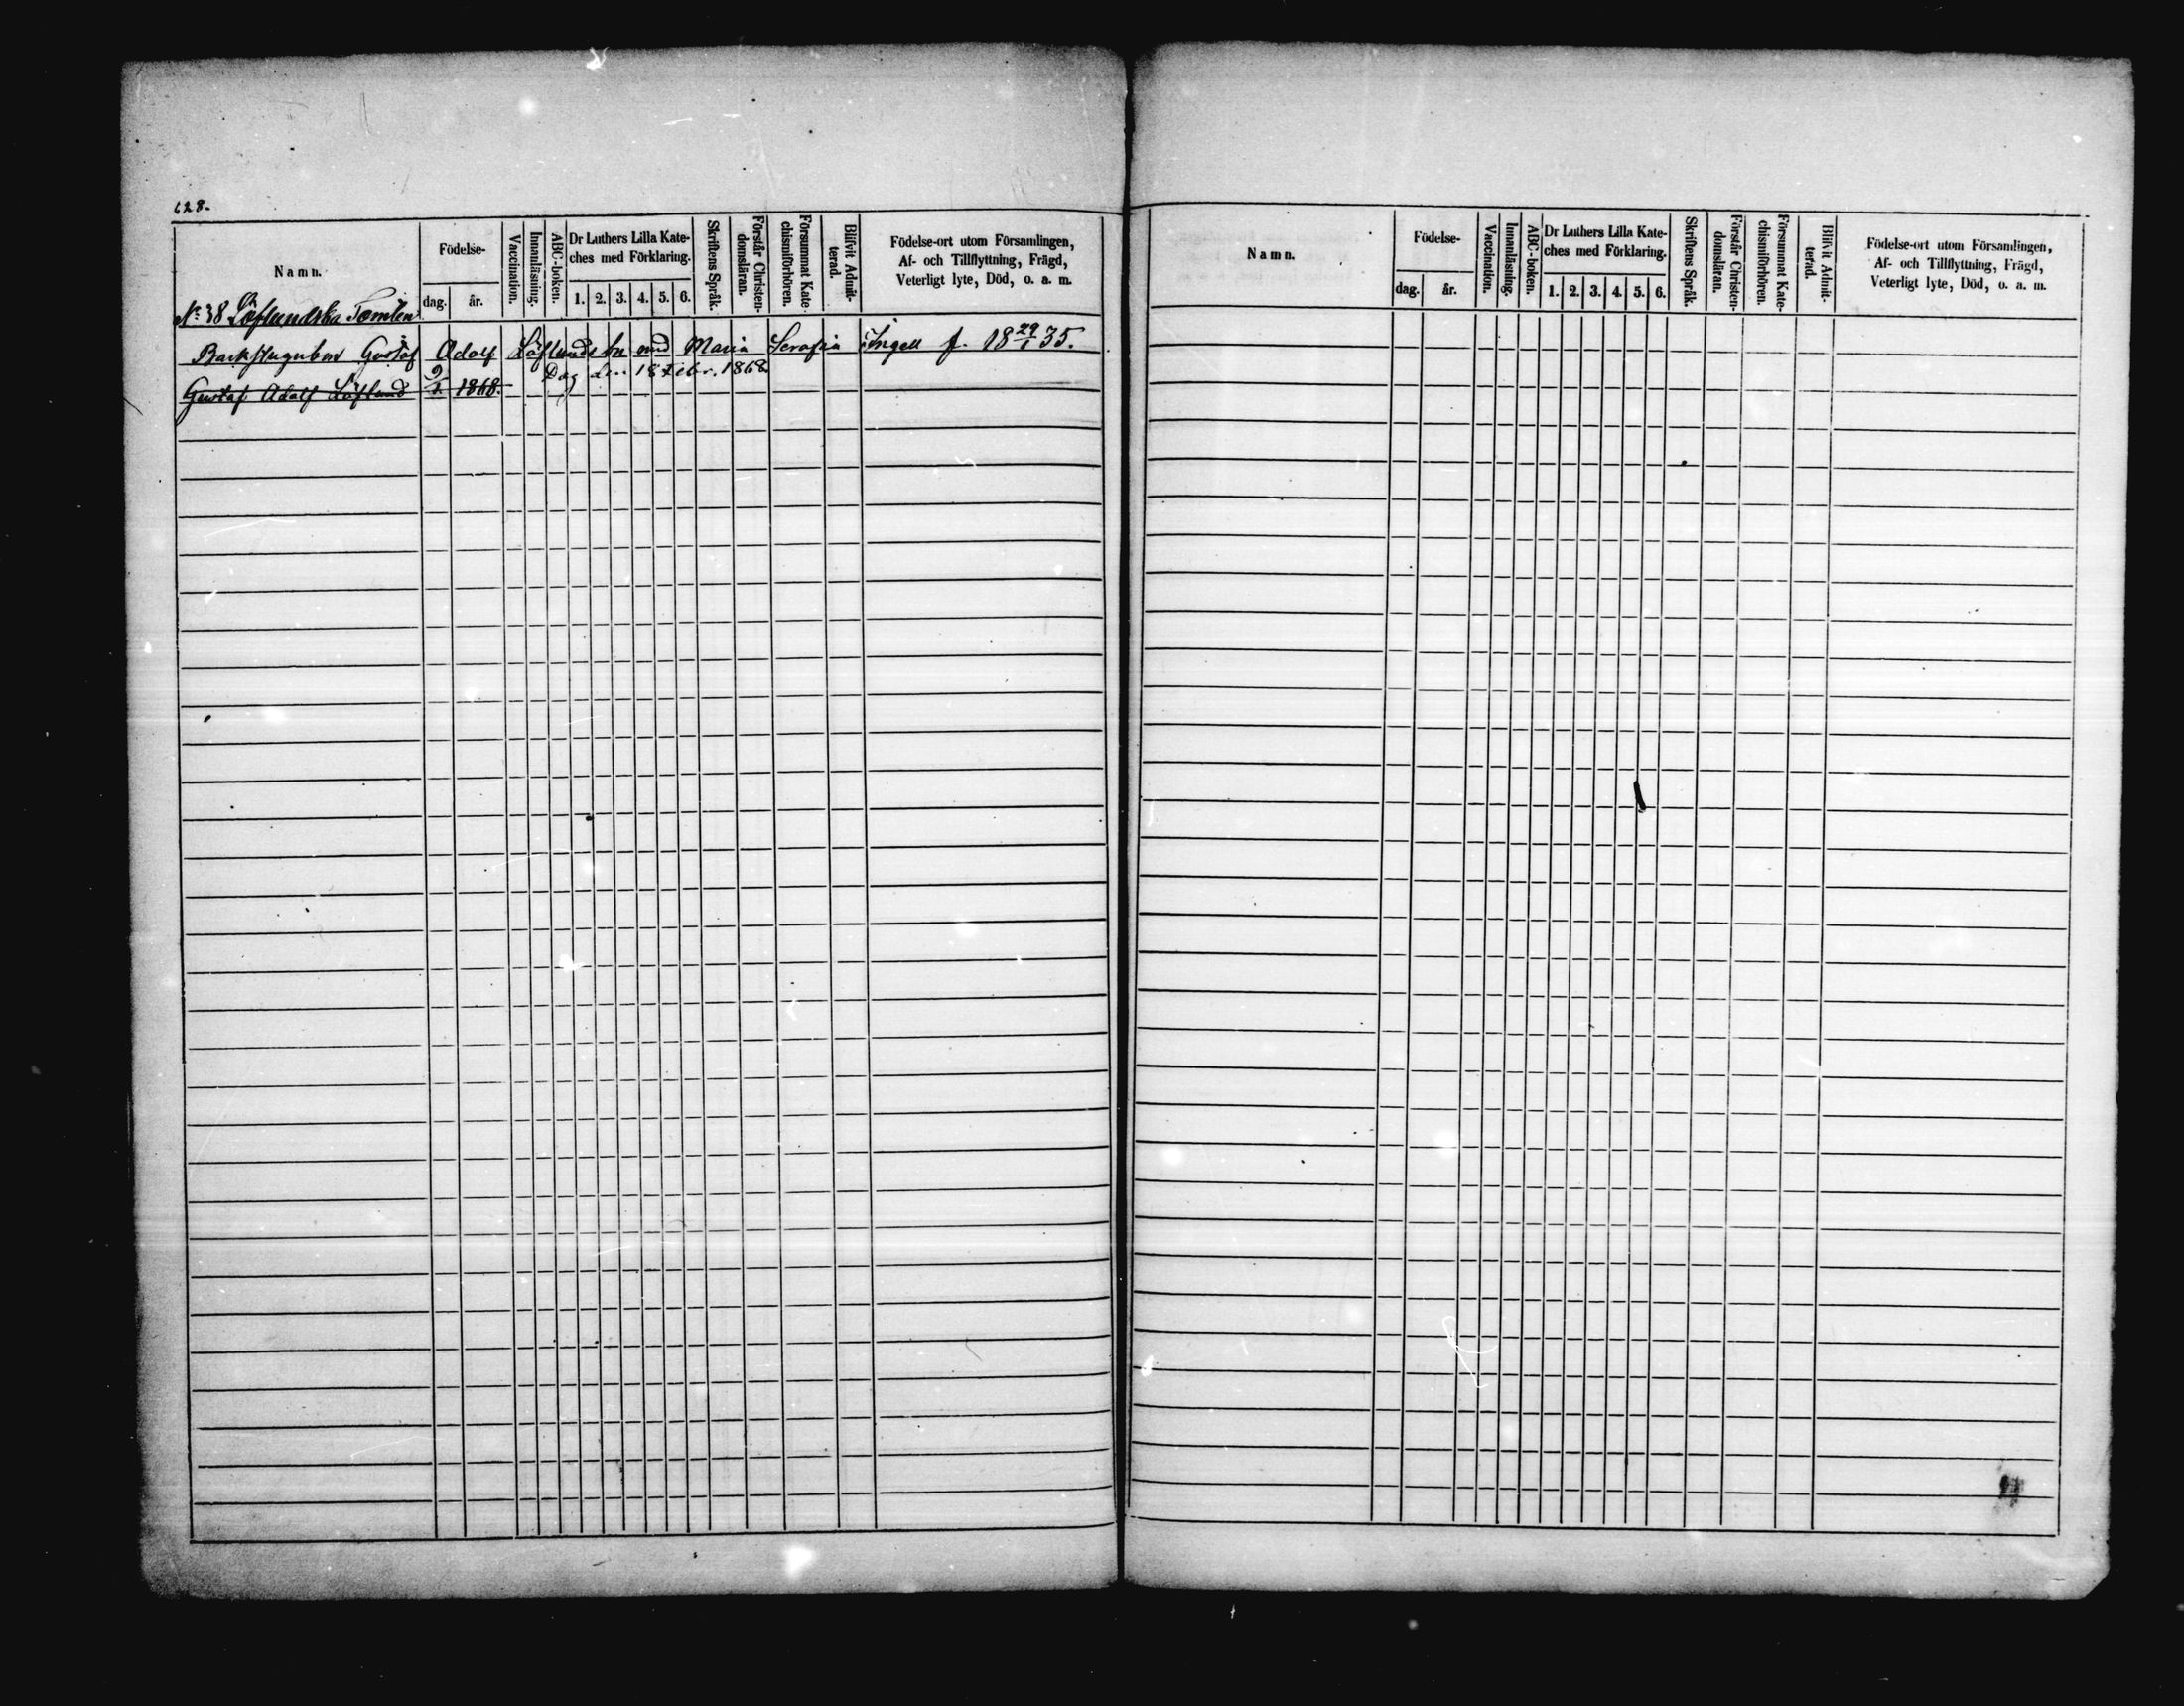 628.
Namn.
Födelse-
dag.
år.
Vaccination.
Innanläsning.
ABC-boken.
Dr Luthers Lilla Kate-
ches med Förklaring.
1. 2. 3. 4. 5. 6.
Skriftens Språk.
Förstår Christen-
domsläran.
Försummat Kate
chismiförhören.
Blifvit Admit-
terad.
Födelse-ort utom Församlingen,
Af- och Tillflyttning, Frägd,
Veterligt lyte, Död, o. a. m.
No 38 Löflundska Tomten
Gustaf Adolf Löflunds bn med Maria Serafia Ingell f. 18 29/1 35.
Gustaf Adolf Löflund 9/1 1868. 18 Febr. 1868
Namn.
Födelse-
dag.
år.
Vaccination.
Innanläsning.
ABC-boken.
Dr Luthers Lilla Kate-
ches med Förklaring.
1. 2. 3. 4. 5. 6.
Skriftens Språk.
Förstår Christen-
domsläran.
Försummat Kate-
chismiförhören.
Blifvit Admit-
terad.
Födelse-ort utom Församlingen,
Af- och Tillflyttning, Frägd,
Veterligt lyte, Död, o. a. m.